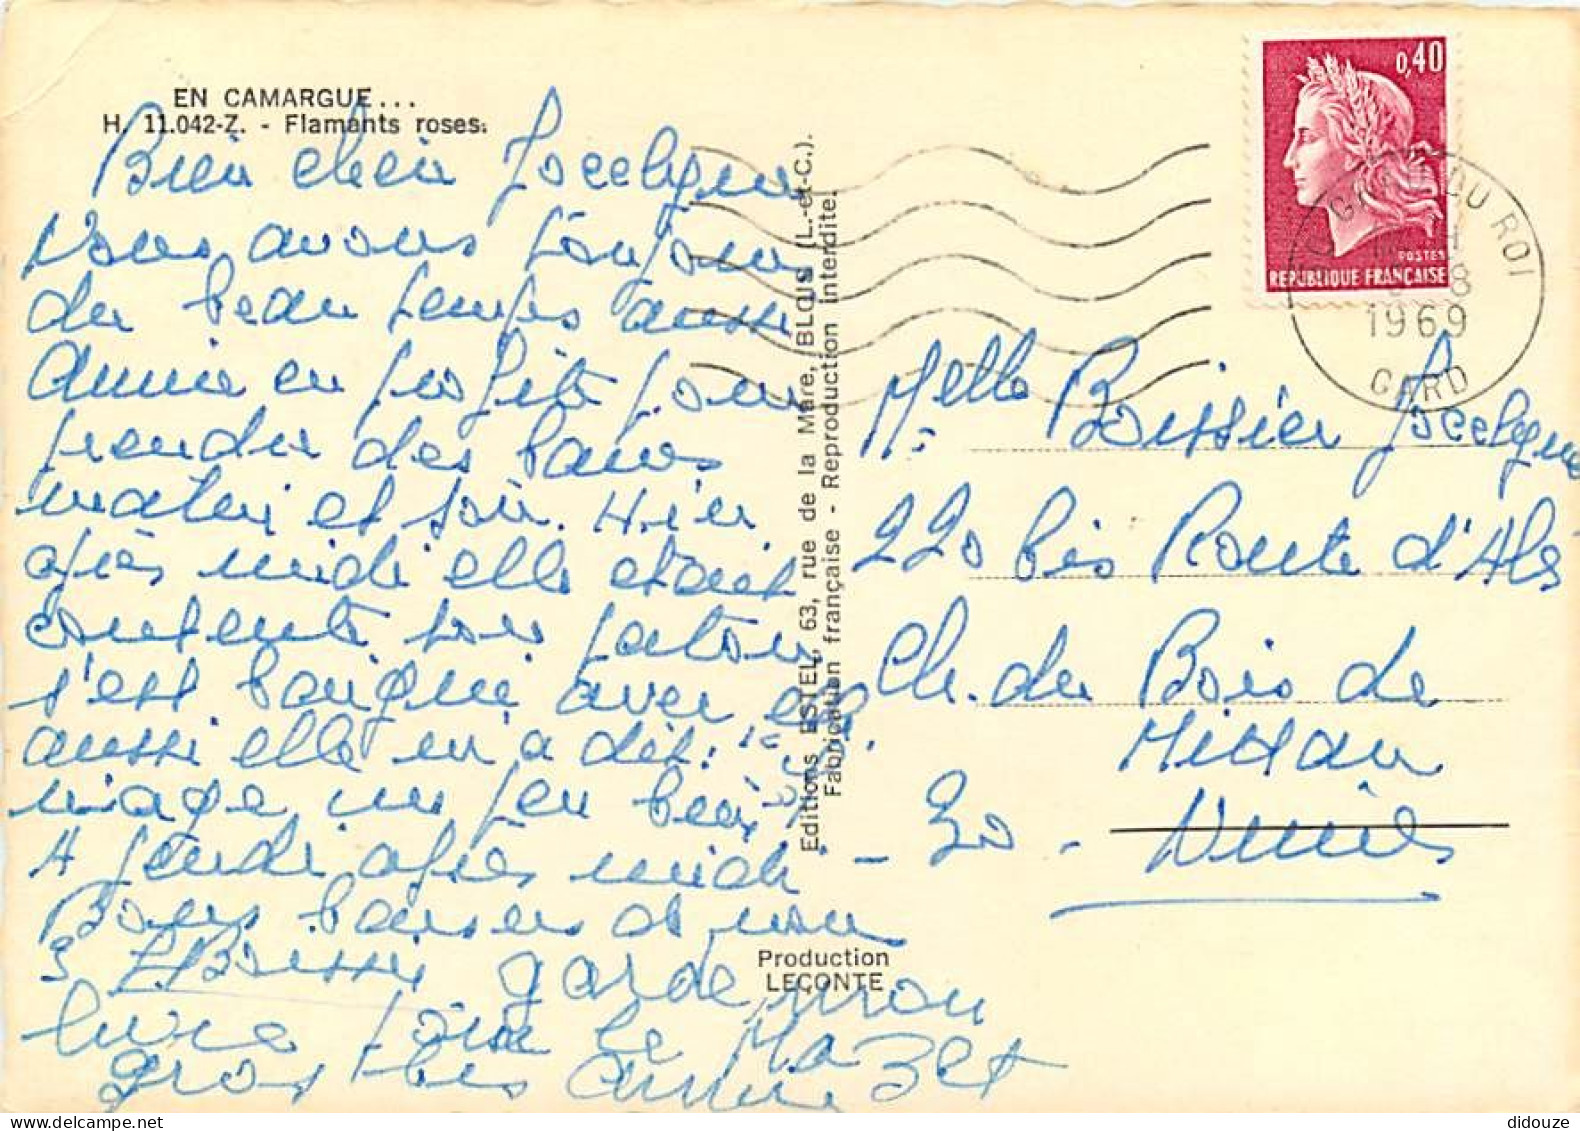 EN CAMARGUE...
H. 11.042-Z. - Flamants roses.
Bien cher Jocelyne
Nous avons toujours
du beau temps aussi
Annie en profite pour
prendre des bains
matin et soir. Hier
après midi elle etait
contente son patou
s'est baigné avec elle
aussi elle m'a dit: "
nage un peu bien"
A jeudi après midi
Bons baisers de nous
3 Boissier garde mon
livre pour le Mazet
gros bis Annie
Editions ESTEL, 63, rue de la Mare, BLOIS (L.-et-C.).
Fabrication française - Reproduction interdite.
Production
LECONTE
0,40
POSTES
REPUBLIQUE FRANÇAISE
DU ROI
1969
GARD
Melle Boissier Jocelyne
220 bis Route d'Alès
Ch. du Bois de
Mittau
30 - Nimes
didouze